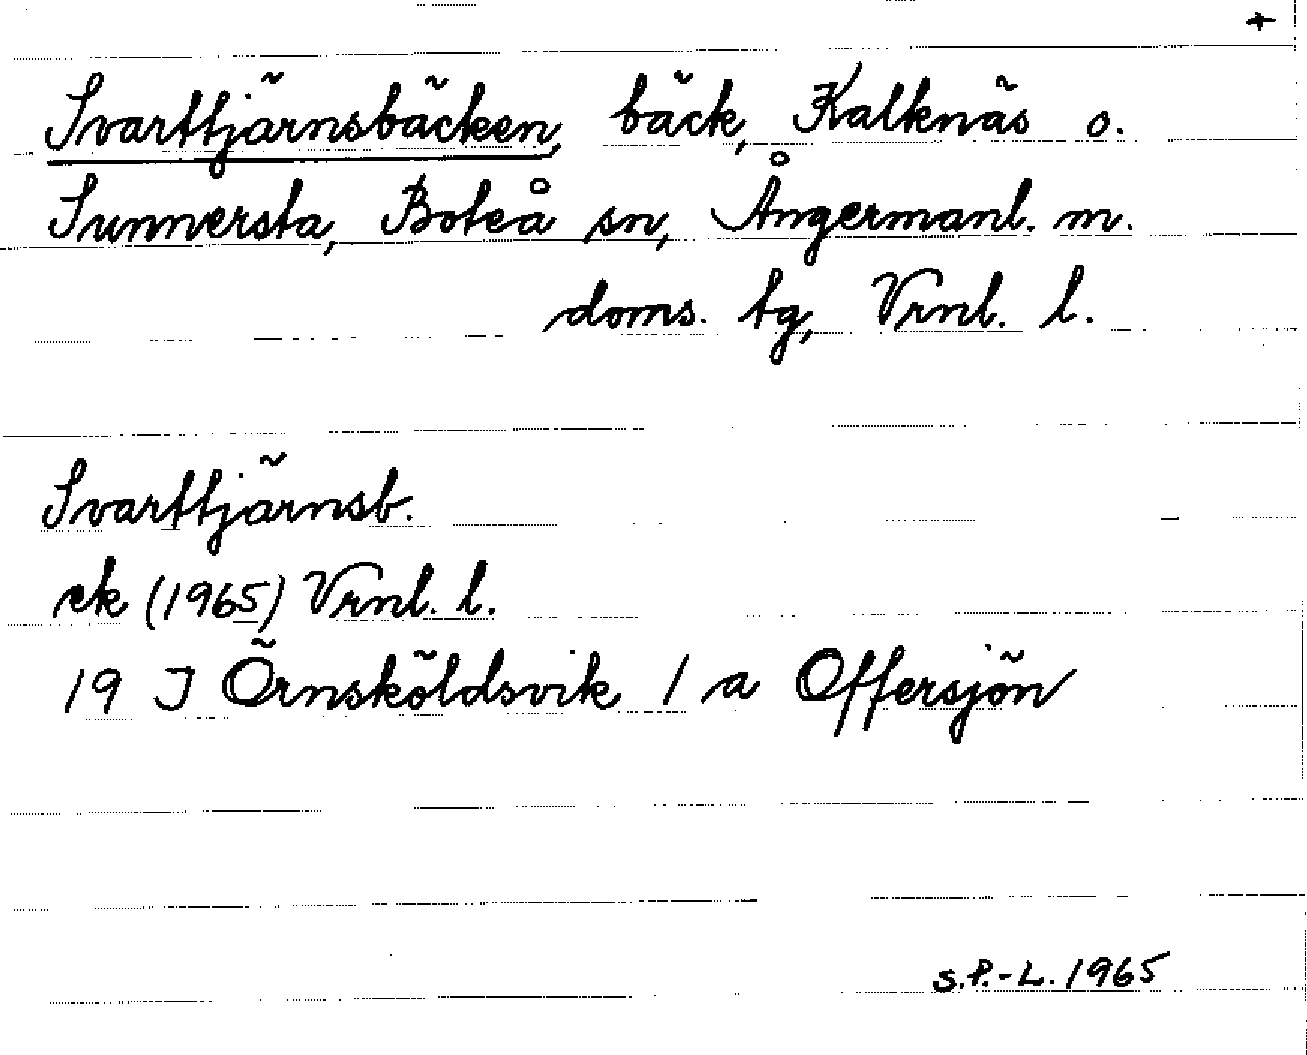 +
Svarttjärnsbäcken, bäck, Kalknäs o.
Sunnersta, Boteå sn, Ångermanl. m.
doms. tg, Vrnl. l.
Svarttjärnsb.
ek (1965) Vrnl. l.
19 J Örnsköldsvik 1 a Offersjön
S.P.-L. 1965